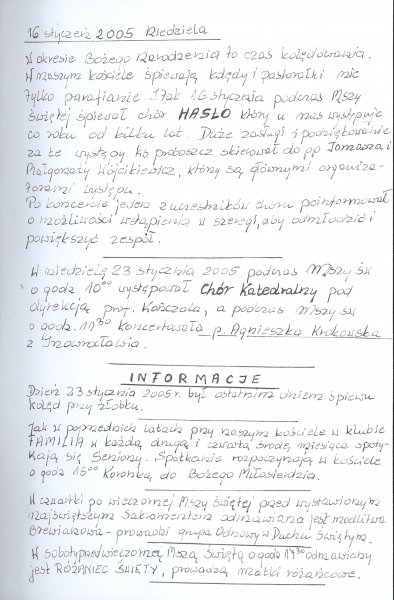 16 styczeń 2005 Niedziela
W okresie Bożego Narodzenia to czas kolędowania.
W naszym kościele śpiewają kolędy i pastorałki nie
tylko parafianie. I tak 16 stycznia podczas Mszy
świętej śpiewał chór HASŁO który u nas występuje
co roku od kilku lat. Duże zasługi i podziękowanie
za te występy ks. proboszcz skierował do pp Tomasza i
Małgorzaty Wójcikiewicz, którzy są głównymi organiza-
torami występu.
Po koncercie jeden z uczestników chóru poinformował
o możliwości wstąpienia w szeregi, aby odmłodzić i
powiększyć zespół.
W niedzielę 23 stycznia 2005 podczas Mszy św
o godz 10⁰⁰ występował Chór Katedralny pod
dyrekcją prof. Kończala, a podczas Mszy św
o godz. 17³⁰ koncertowała p. Agnieszka Krokowska
z Inowrocławia.
INFORMACJE
Dzień 23 stycznia 2005 r. był ostatnim dniem śpiewu
kolęd przy żłobku.
Jak w poprzednich latach przy naszym kościele w klubie
FAMILIA w każdą drugą i czwartą środę miesiąca spoty-
kają się Seniorzy. Spotkanie rozpoczynają w kościele
o godz 15⁰⁰ Koronką do Bożego Miłosierdzia.
W czwartki po wieczornej Mszy świętej przed wystawionym
najświętszym Sakramentem odmawiana jest modlitwa
Brewiażowa - prowadzi grupa Odnowy w Duchu Świętym.
W soboty przed wieczorną Mszą świętą o godz 17³⁰ odmawiany
jest RÓŻANIEC ŚWIĘTY, prowadzą matki różańcowe.